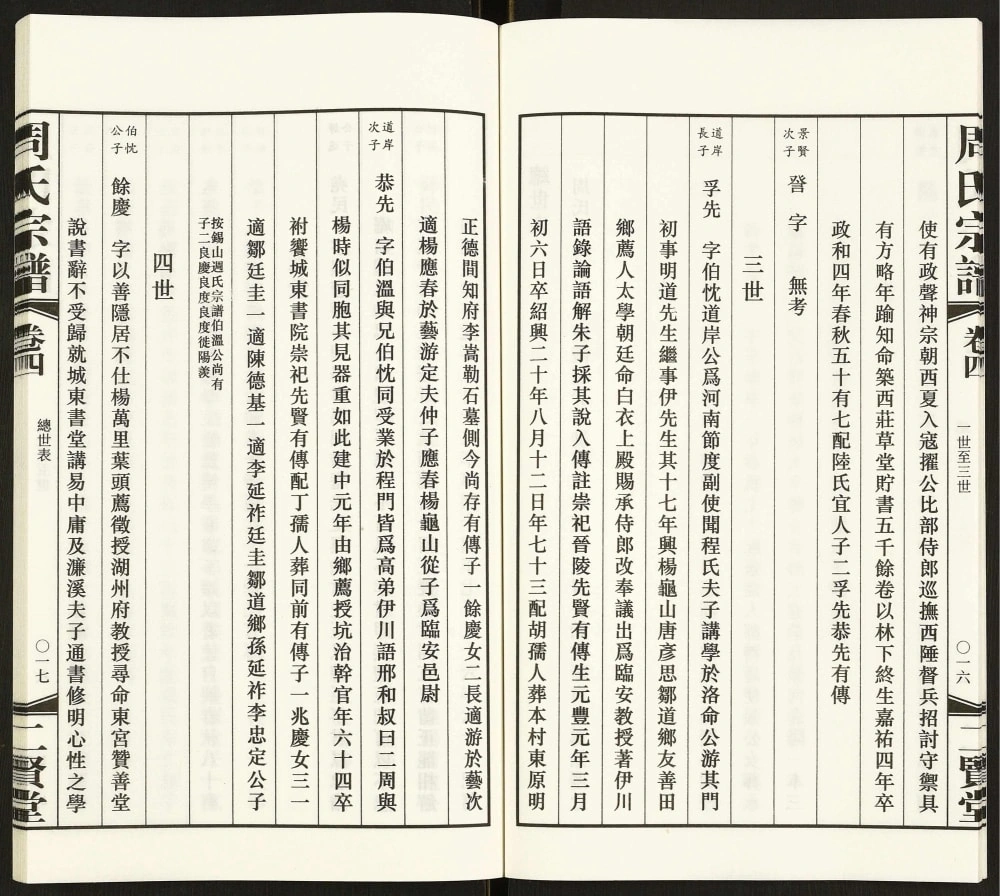 周氏宗譜
卷四
一世至三世
〇一六
二賢堂
使有政聲神宗朝西夏入寇擢公比部侍郎巡撫西陲督兵招討守禦具
有方略年踰知命築西莊草堂貯書五千餘卷以林下終生嘉祐四年卒
政和四年春秋五十有七配陸氏宜人子二孚先恭先有傳
景賢次子
晉 字 無考
三世
道岸長子
孚先 字伯忱道岸公爲河南節度副使聞程氏夫子講學於洛命公游其門
初事明道先生繼事伊先生其十七年興楊龜山唐彥思鄒道鄉友善田
鄉薦人太學朝廷命白衣上殿賜承侍郎改奉議出爲臨安教授著伊川
語錄論語解朱子採其說入傳註崇祀晉陵先賢有傳生元豐元年三月
初六日卒紹興二十年八月十二日年七十三配胡孺人葬本村東原明
正德間知府李嵩勒石墓側今尚存有傳子一餘慶女二長適游於藝次
適楊應春於藝游定夫仲子應春楊龜山從子爲臨安邑尉
道岸次子
恭先 字伯溫與兄伯忱同受業於程門皆爲高弟伊川語邢和叔曰二周與
楊時似同胞其見器重如此建中元年由鄉薦授坑治幹官年六十四卒
祔饗城東書院崇祀先賢有傳配丁孺人葬同前有傳子一兆慶女三一
適鄒廷圭一適陳德基一適李延祚廷圭鄒道鄉孫延祚李忠定公子
按錫山週氏宗譜伯溫公尚有
子二良慶良度良度徙陽羨
四世
伯忱公子
餘慶 字以善隱居不仕楊萬里葉頭薦徵授湖州府教授尋命東宮贊善堂
說書辭不受歸就城東書堂講易中庸及濂溪夫子通書修明心性之學
周氏宗譜
卷四
總世表
〇一七
二賢堂